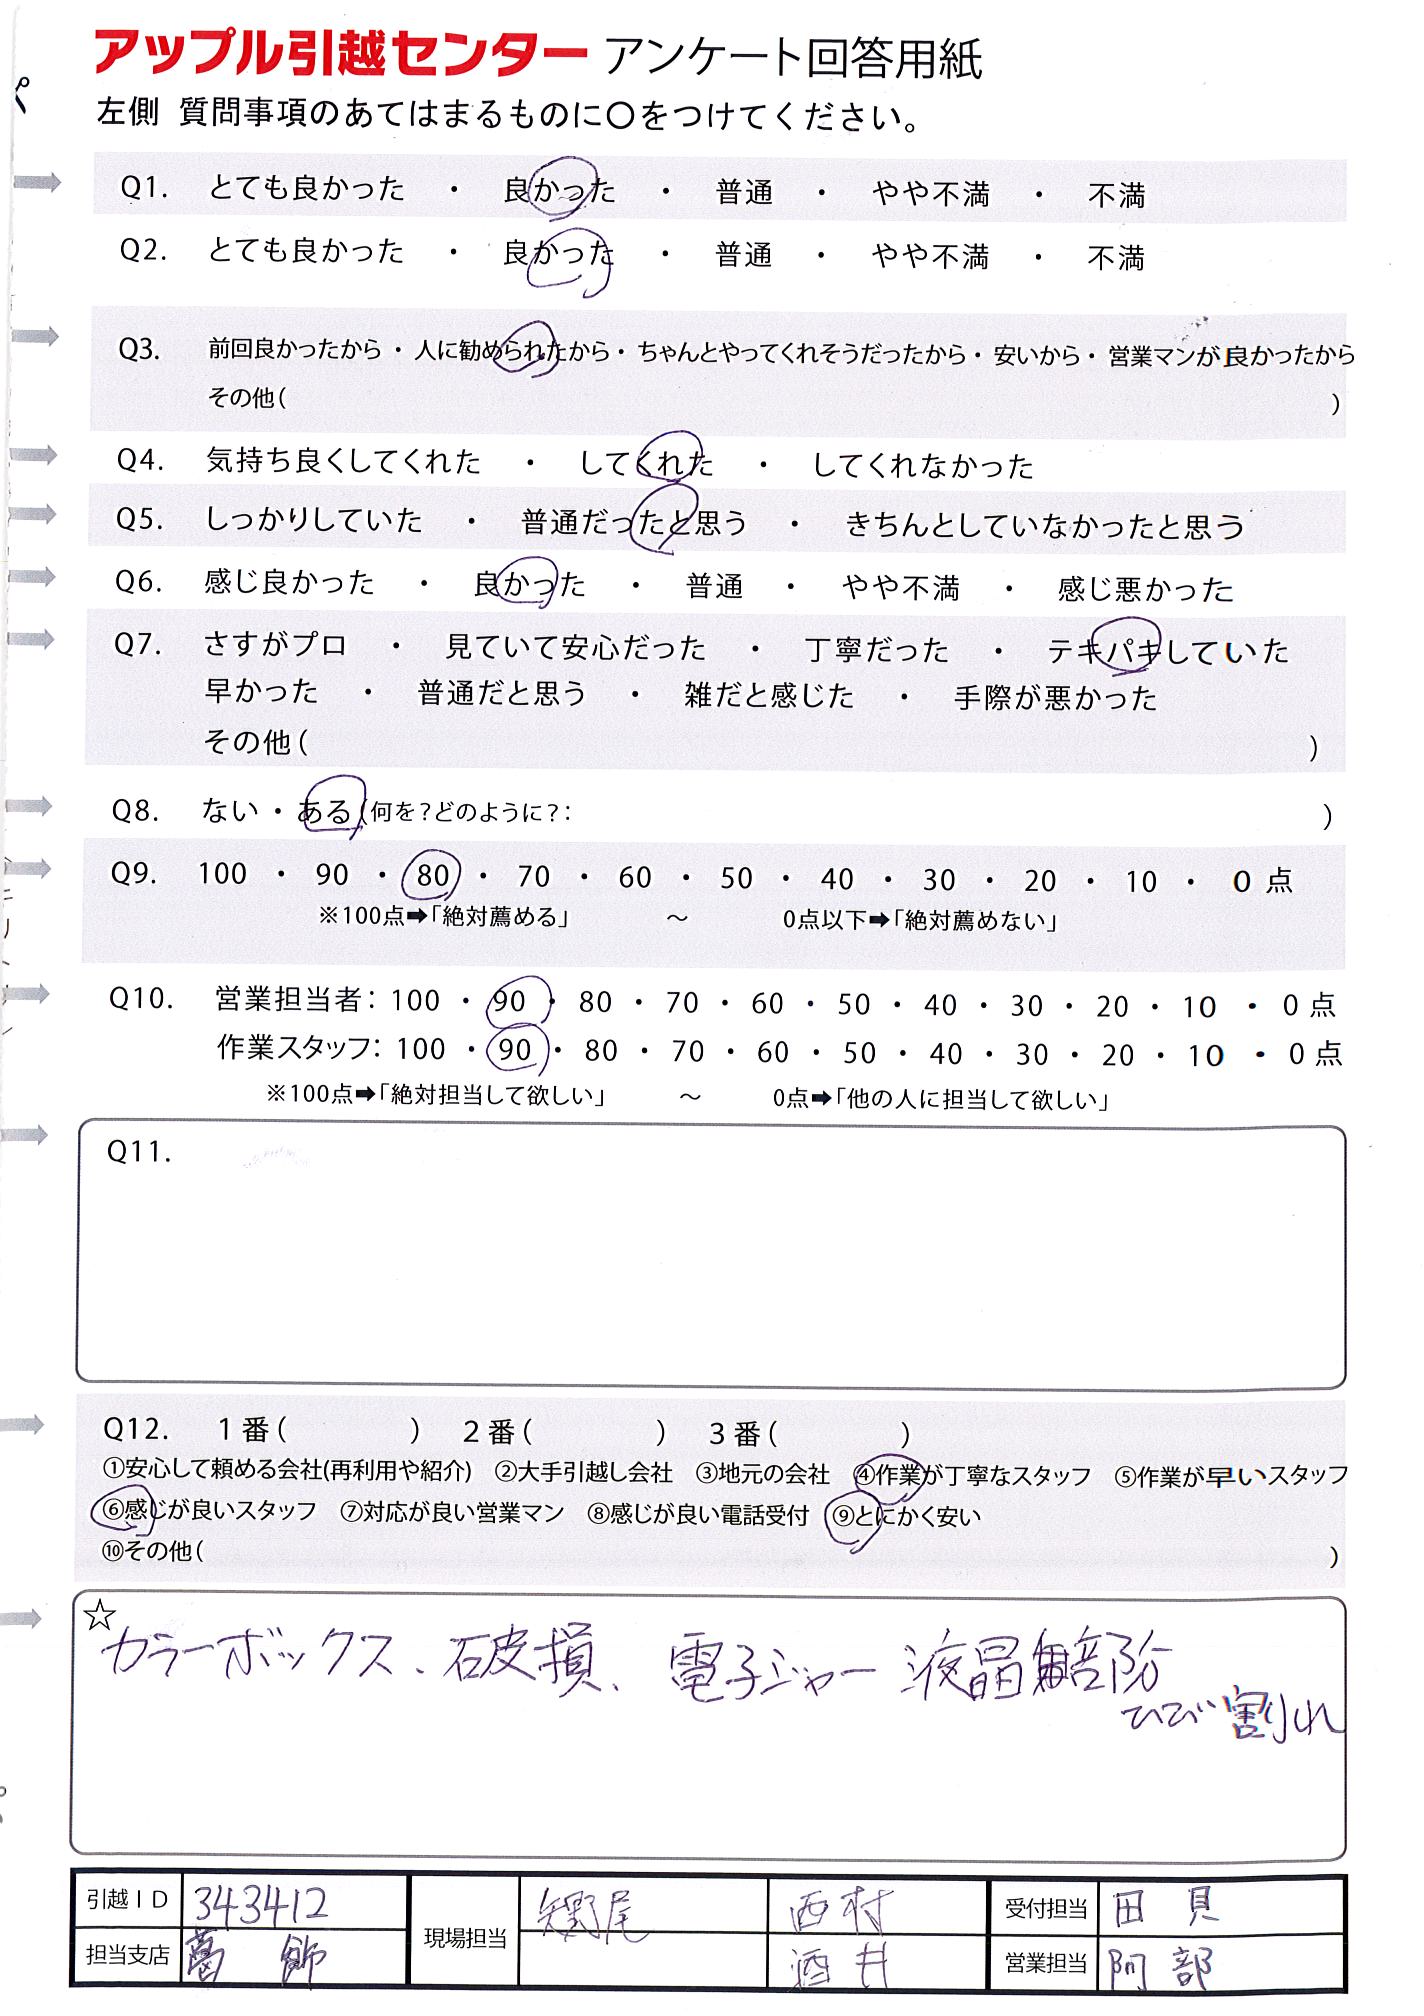 アップル引越センター アンケート回答用紙
左側 質問事項のあてはまるものに〇をつけてください。
Q1. とても良かった ・ 良かった ・ 普通 ・ やや不満 ・ 不満
Q2. とても良かった ・ 良かった ・ 普通 ・ やや不満 ・ 不満
Q3. 前回良かったから ・ 人に勧められたから ・ ちゃんとやってくれそうだったから ・ 安いから ・ 営業マンが良かったから
その他( )
Q4. 気持ち良くしてくれた ・ してくれた ・ してくれなかった
Q5. しっかりしていた ・ 普通だったと思う ・ きちんとしていなかったと思う
Q6. 感じ良かった ・ 良かった ・ 普通 ・ やや不満 ・ 感じ悪かった
Q7. さすがプロ ・ 見ていて安心だった ・ 丁寧だった ・ テキパキしていた
早かった ・ 普通だと思う ・ 雑だと感じた ・ 手際が悪かった
その他( )
Q8. ない ・ ある (何を?どのように?: )
Q9. 100 ・ 90 ・ 80 ・ 70 ・ 60 ・ 50 ・ 40 ・ 30 ・ 20 ・ 10 ・ 0 点
※100点➡「絶対薦める」 ～ 0点以下➡「絶対薦めない」
Q10. 営業担当者: 100 ・ 90 ・ 80 ・ 70 ・ 60 ・ 50 ・ 40 ・ 30 ・ 20 ・ 10 ・ 0 点
作業スタッフ: 100 ・ 90 ・ 80 ・ 70 ・ 60 ・ 50 ・ 40 ・ 30 ・ 20 ・ 10 ・ 0 点
※100点➡「絶対担当して欲しい」 ～ 0点➡「他の人に担当して欲しい」
Q11.
Q12. 1番( ) 2番( ) 3番( )
①安心して頼める会社(再利用や紹介) ②大手引越し会社 ③地元の会社 ④作業が丁寧なスタッフ ⑤作業が早いスタッフ
⑥感じが良いスタッフ ⑦対応が良い営業マン ⑧感じが良い電話受付 ⑨とにかく安い
⑩その他( )
☆
カラーボックス、破損、電子ジャー 液晶部分
ひび割れ
引越ID 343412 現場担当 矢野尾 西村 受付担当 田 貝
担当支店 葛 飾 酒井 営業担当 阿 部